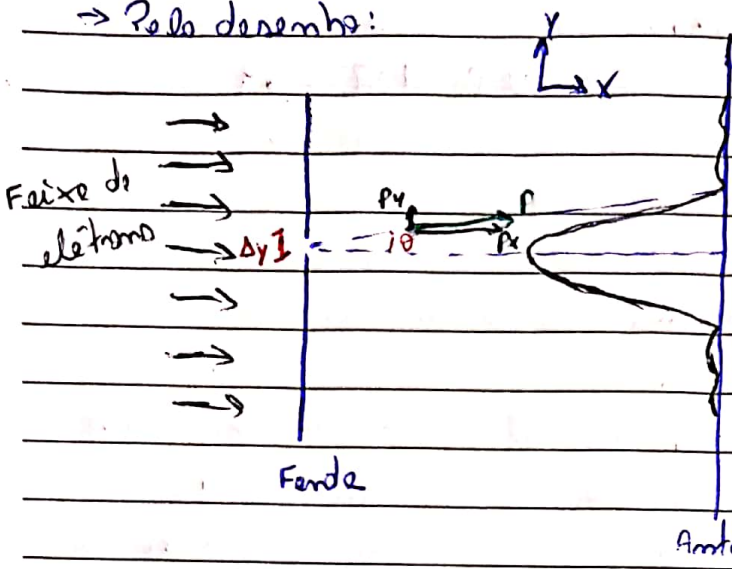 → Pelo desenho:
Y
X
Feixe de
elétrons
Δy
Py
P
θ
Px
Fenda